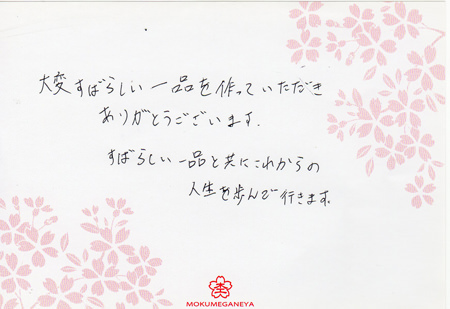 大変すばらしい一品を作っていただき
ありがとうございます.
すばらしい一品と共にこれからの
人生を歩んで行きます.
MOKUMEGANEYA